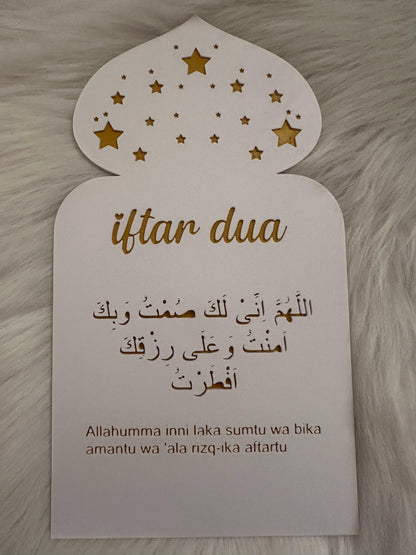 iftar dua
اللَّهُمَّ اِنِّىْ لَكَ صُمْتُ وَبِكَ
اَمَنْتُ وَ عَلَى رِزْقِكَ
اَفْطَرْتُ
Allahumma inni laka sumtu wa bika
amantu wa 'ala rizq-ika aftartu